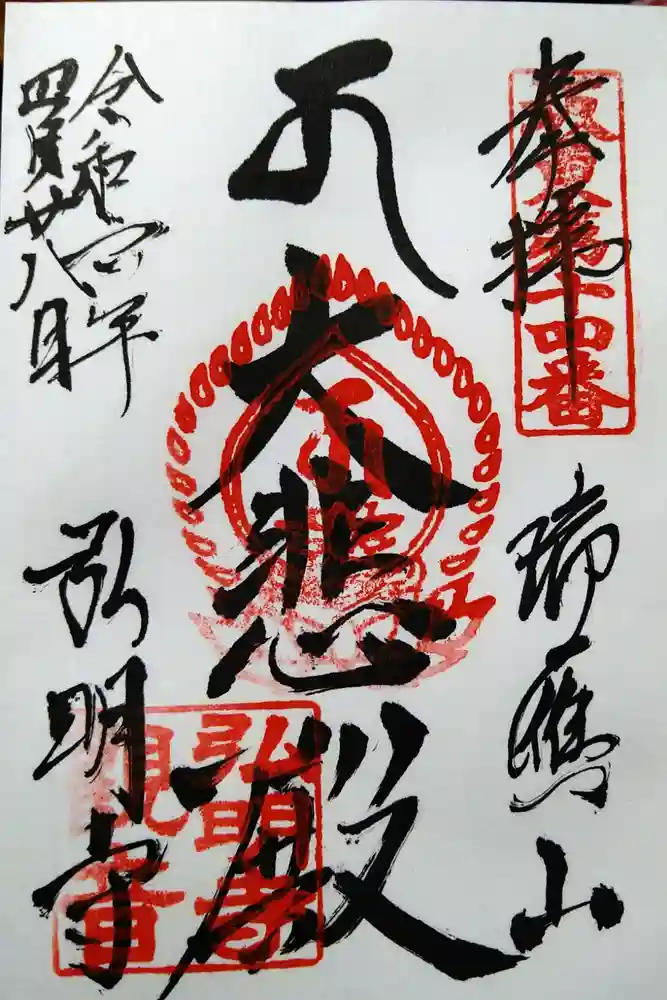 奉拝
坂東第十四番
瑞應山
大悲殿
令和四年
四月廿八日
弘明寺
弘明寺
観音